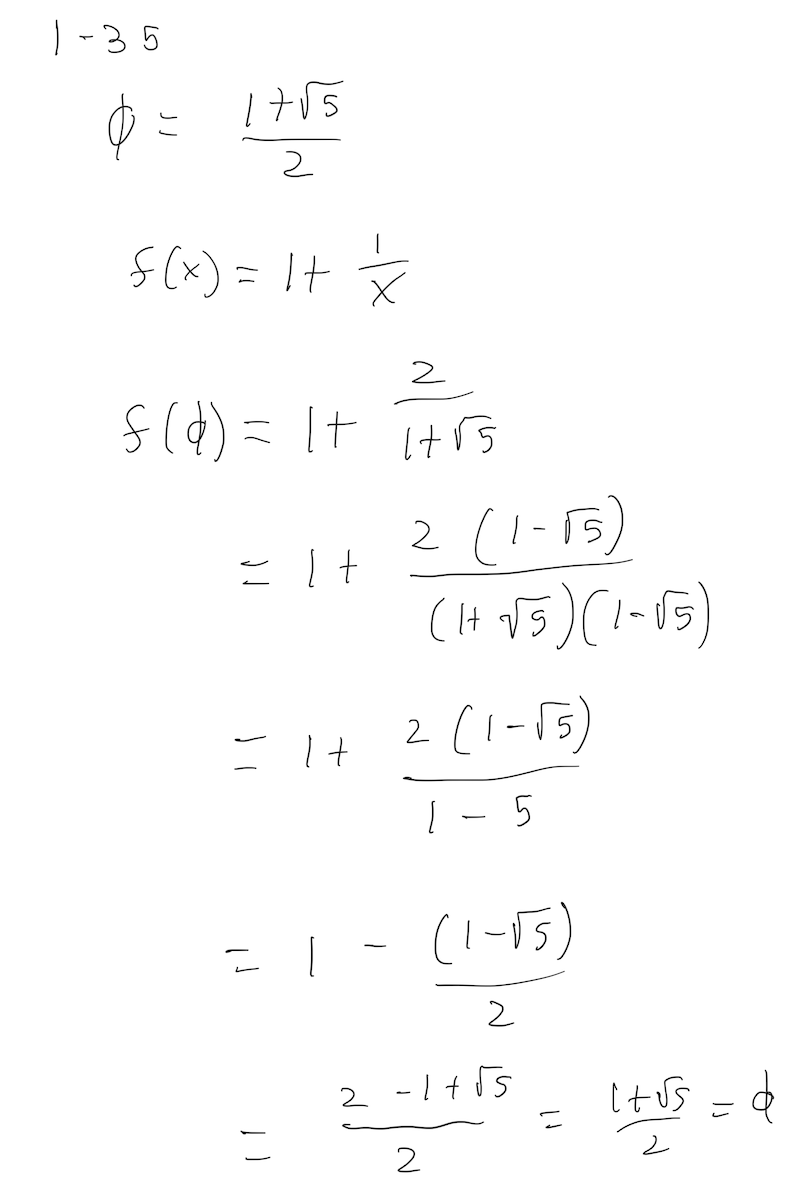 1-35
ϕ = (1+√5)/2
f(x) = 1 + 1/x
f(ϕ) = 1 + 2/(1+√5)
= 1 + 2(1-√5)/((1+√5)(1-√5))
= 1 + 2(1-√5)/(1-5)
= 1 - (1-√5)/2
= (2-1+√5)/2 = (1+√5)/2 = ϕ